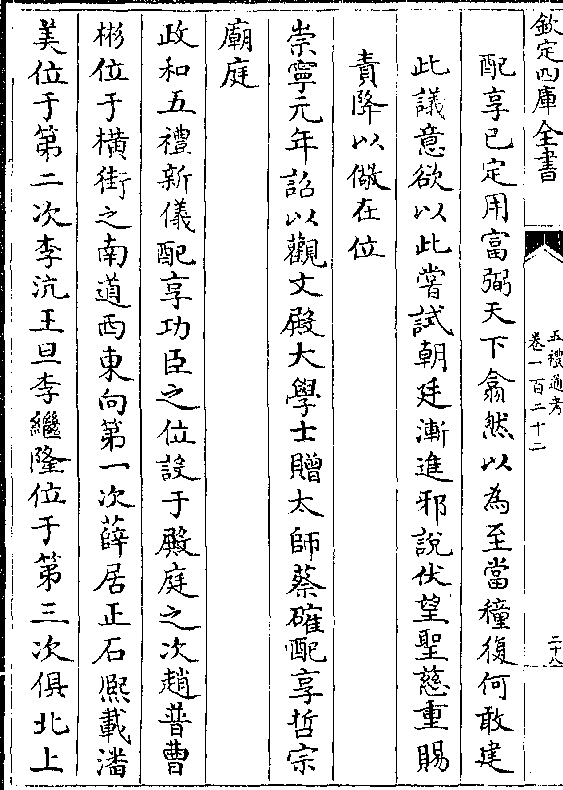 欽定四庫全書
五禮通考
卷一百二十二
二十八
配享已定用富弼天下翕然以為至當穜復何敢建
此議意欲以此嘗試朝廷漸進邪說伏望聖慈重賜
責降以儆在位
崇寧元年詔以觀文殿大學士贈太師蔡確配享哲宗
廟庭
政和五禮新儀配享功臣之位設于殿庭之次趙普曹
彬位于橫街之南道西東向第一次薛居正石熈載潘
美位于第二次李沆王旦李繼隆位于第三次俱北上